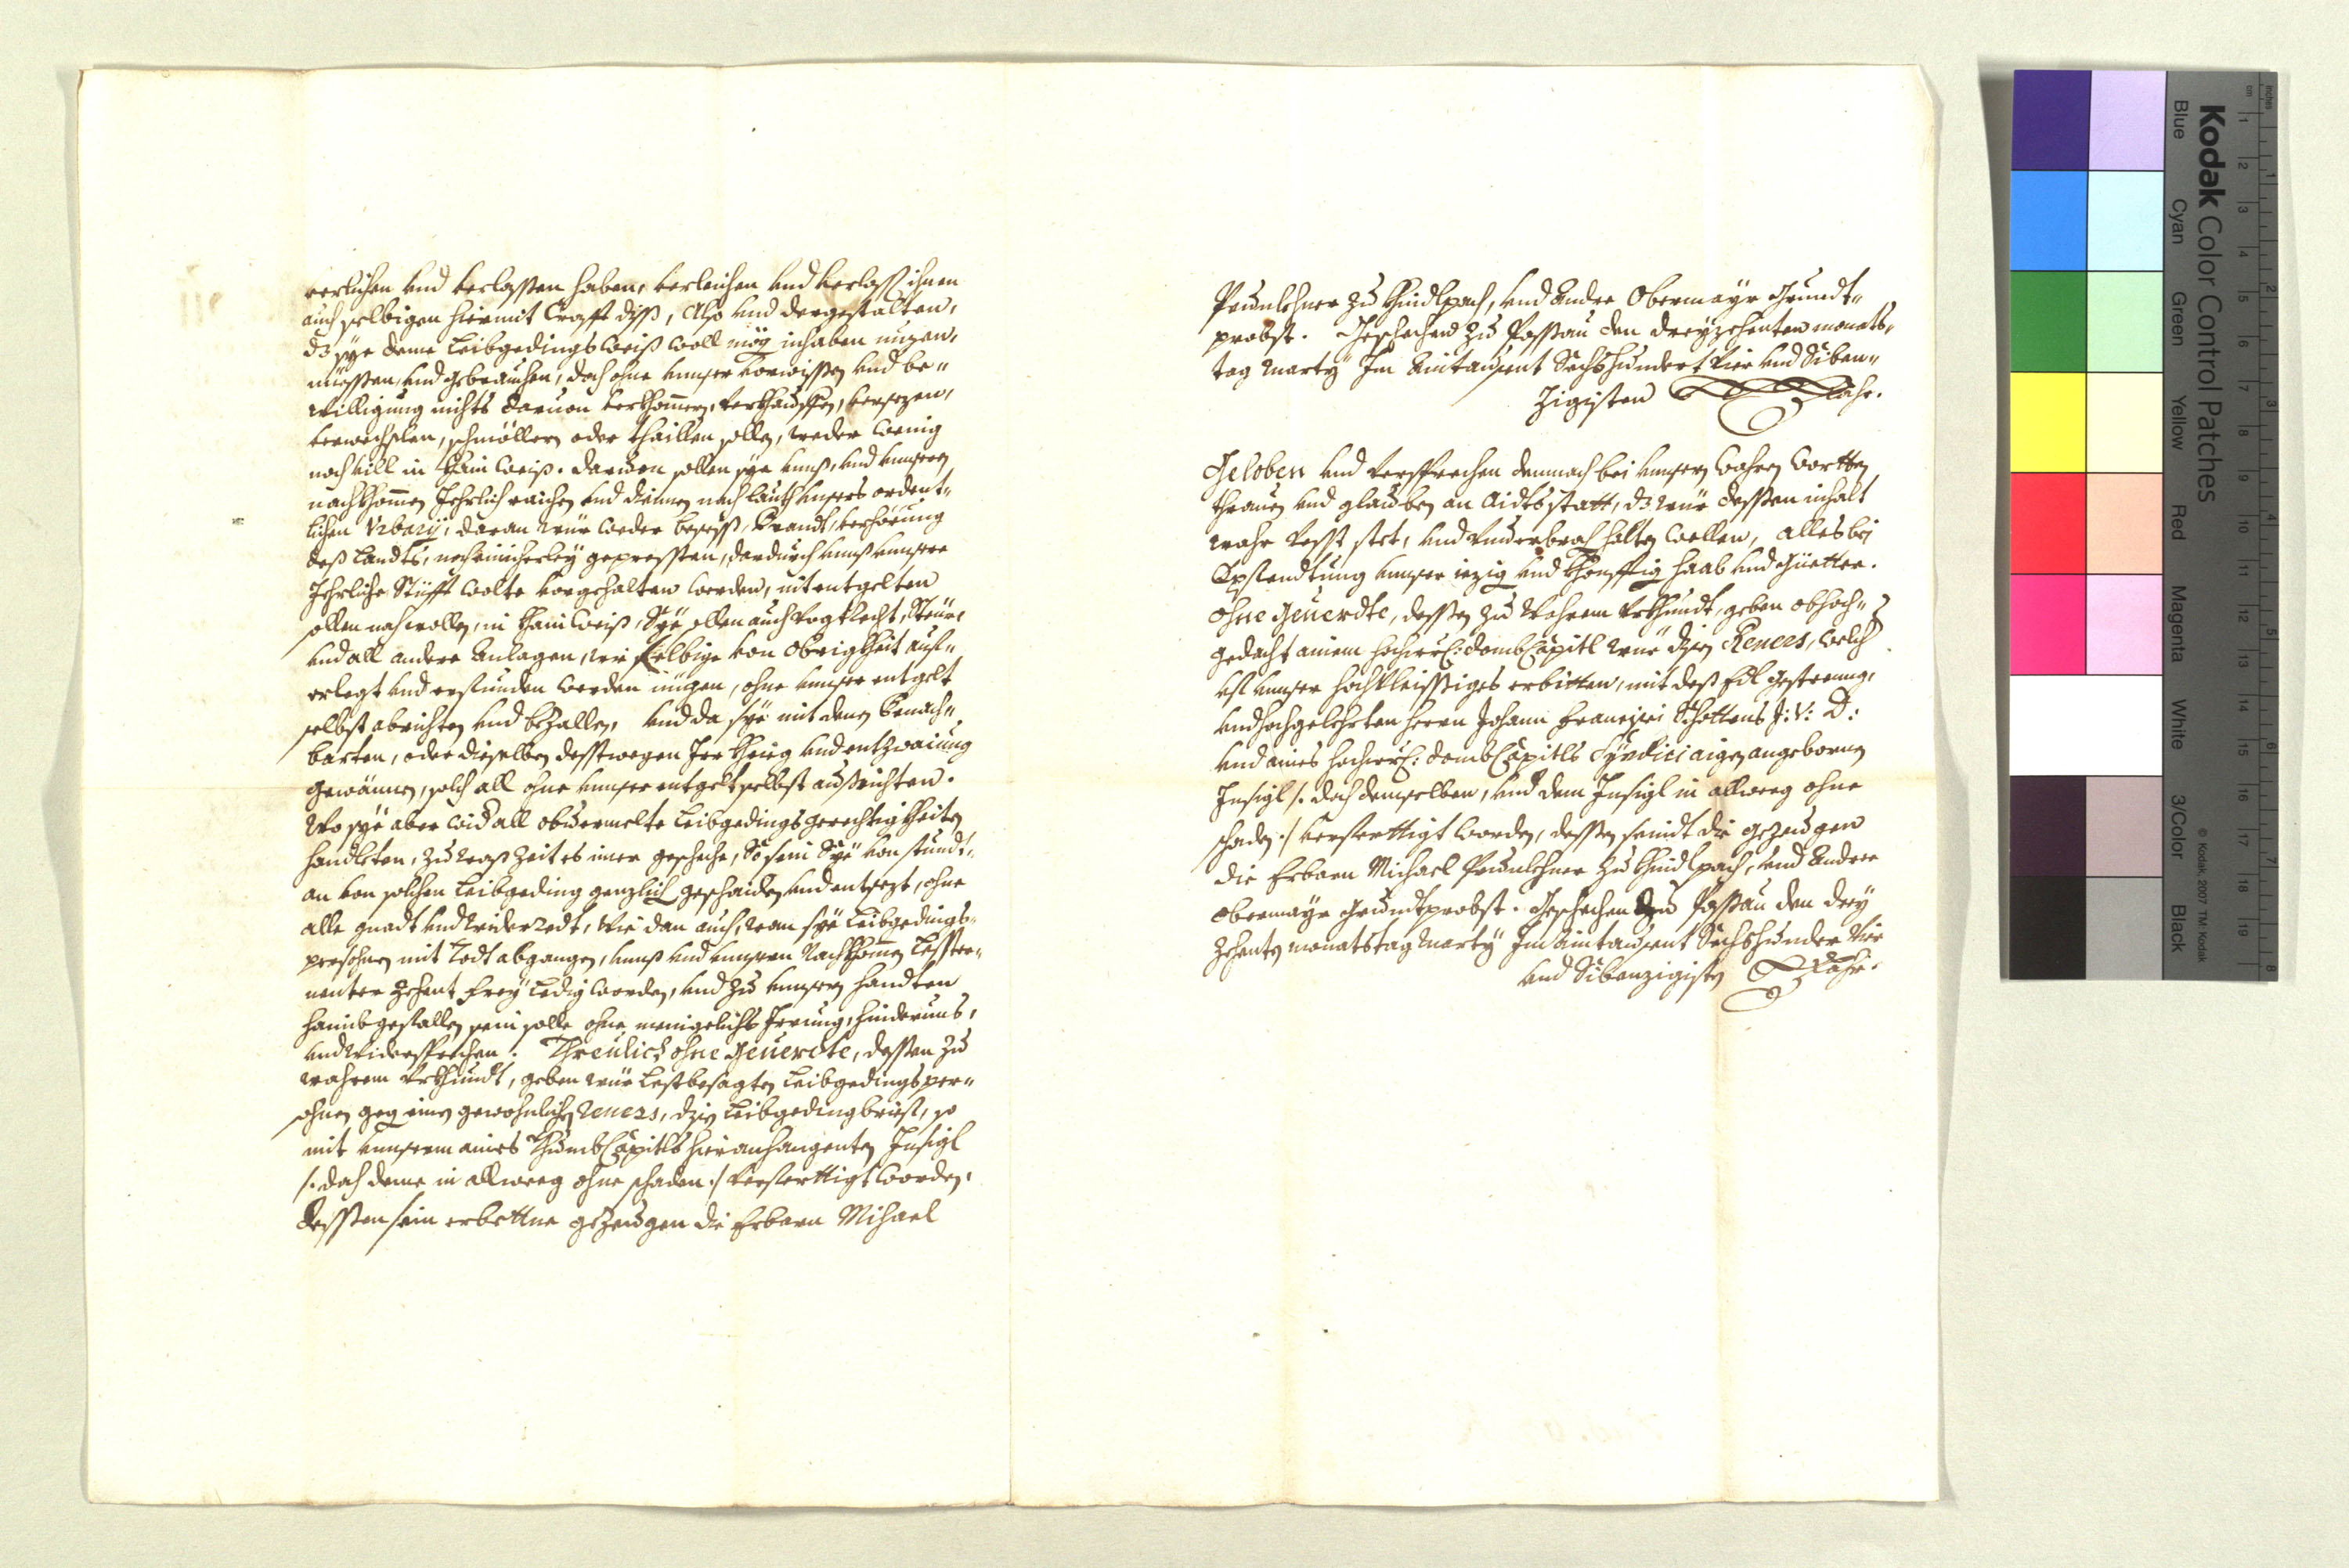 verlichen vnd verlassen haben, verleichen vnd verlass ihnen
auch selbigen hiermit Crafft diß, Also vnd dergestalten,
dz sye deme Leibgedings Weiß woll mög inhaben nuzen,
niessen, vnd gebrauchen, doch ohne vnnser vorwissen vnd be„
willigung nichts dauon verkhommen, verkhauffen, versezen,
verwechslen, schmöllern oder thaillen sollen, weder wenig
noch vill in khain weiß. dauon sollen sye vnnß, vnd vnnseren
nachkhommen Jehrlich raichen vnd dienen nach lauth vnsers ordent„
lichen Vrbarÿ, daran wür weder besess, Brandt, verhörung
deß Landts, noch einicherley gepressten, dardurch vnnß vnnsere
Jehrliche Stüfft wolte vorgehalten werden, nit entgelten
sollen noch wollen, in khain Weiß, Sye sollen auch Vogtrecht, Steur,
vnd all andere Anlagen, wie selbige von Obrigkheit auf„
erlegt vnd erstunden werden mügen, ohne vnnser entgelt
selbst abrichten vnd bezallen, vnd da sye mit denen Benach„
barten, oder dieselben desstwegen Irr khrieg vnd entzwaiung
gewünnen, solch all ohne vnnser entgelt selbst außrichten.
Wo sye aber wid all obuermelte Leibgedings gerechtigkheiten
handleten, zu waß Zeit es imer geschehe, So sein Sye von stundt„
an von solchen Leibgeding genzlich geschaiden vnd entsezt, ohne
alle gnadt vnd widerredt, Wie dan auch, wan sye Leibgedings„
persohnen mit Todt abgangen, vnnß vnd vnnseren Nachkhommen
nenter Zehent frey ledig worden, vnd zu vnnseren handten
haimbgefallen sein solle ohne menigelichs Irrung, hindernus,
vnd Widersprechen. Threulich ohne Geuerdte, dessen zu
wahrem Vrkhundt, geben wür Lestbesagten Leibgedings per„
sohnen geg einen gewohnlichen Reuers, disen Leibgedingbrieff, so
mit vnnserem aines Thumb Capitls hieranhangenten Insigl
/: doch deme in allweeg ohne schaden :/ verferttigt worden,
Dessen sein erbettne gezeugen die Erbarn Michael
Prunlehner zu Khindlpach, vnd Andre Obermayr Grundt„
probst. Geschehen zu Passau den dreyzehenten monats„
tag Marty Im Aintausent Sechshundert Vier vnd Siben„
zigisten Jahr.
Geloben vnd versprechen demnach bei vnnseren wahren Wortten,
threuen vnd glauben an Aidts statt, dz wür dessen inhalt
wahr vesst stet, vnd Vnuerbrochen halten wellen, alles bey
Verpfendtung vnnser iezig vnd khonfftig haab vnd Güetter.
ohne Geuerdte, dessen zu Wahrem Vrkhundt, geben obhoch„
gedacht ainem hochwürd: Domb Capitl wür disen Reuers, welch
vf vnnser hochfleissiges erbitten, mit deß Edl Gestreng,
vnd hochgelehrten herrn Johann Francisci Schottens J: V: D:
vnd aines hochwürd: Domb Capitls Syndici aigen angebornen
Insigl /: doch demselben, vnd dem Insigl in allweeg ohne
schaden :/ verferttigt worden, dessen seindt die gezeugen
die Erbarn Michael Prunlehner zu Khindlpach, vnd Andree
Obermayr Grundtprobst. Geschehen zu Passau den drey
zehenten monatstag Marty Im Aintausent Sechshundert Vier
vnd Sibenzigisten Jahr.
Kodak Color Control Patches
© Kodak, 2007 TM: Kodak
Blue Cyan Green Yellow Red Magenta White 3/Color Black
inches 1 2 3 4 5 6 7 8
cm 1 2 3 4 5 6 7 8 9 10 11 12 13 14 15 16 17 18 19